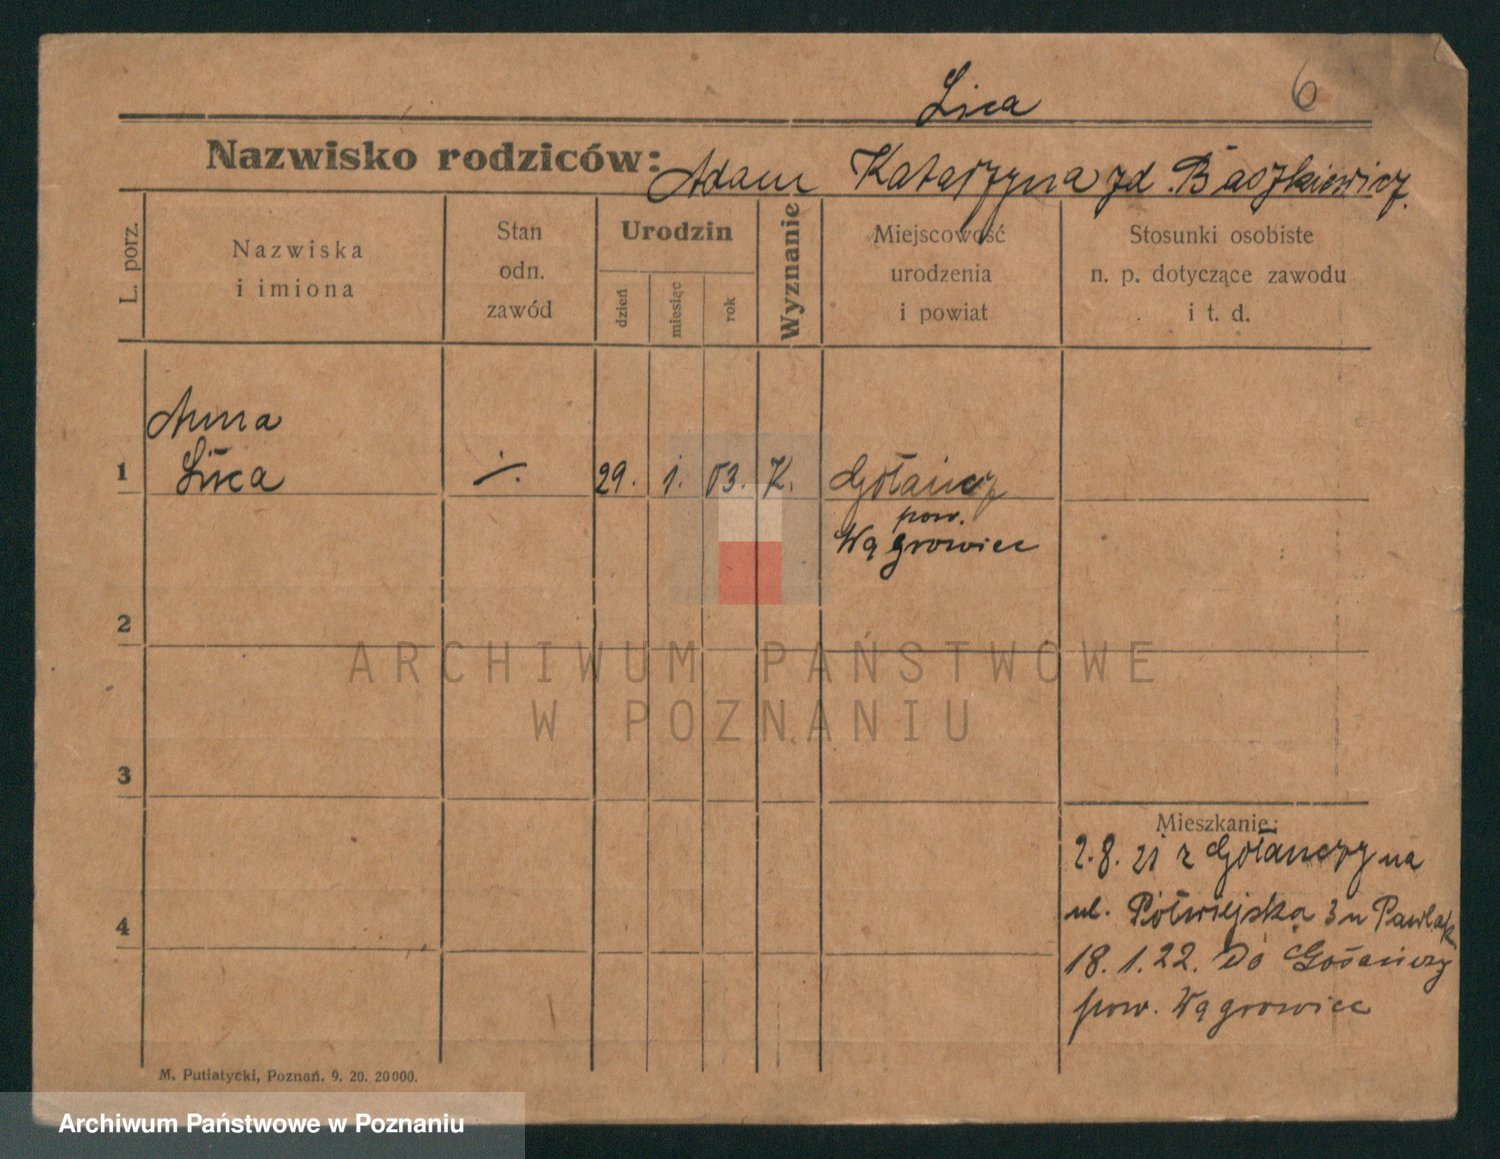 Lica
6
Nazwisko rodziców: Adam Katarzyna zd. Baszkiewicz.
L. porz.
Nazwiska
i imiona
Stan
odn.
zawód
Urodzin
dzień
miesiąc
rok
Wyznanie
Miejscowość
urodzenia
i powiat
Stosunki osobiste
n. p. dotyczące zawodu
i t. d.
Anna
1 Lica 29. 1. 03. K. Gołańcz
pow.
Wągrowiec
2
ARCHIWUM PAŃSTWOWE
W POZNANIU
3
Mieszkanie:
2.8. 21 z Gołańczy na
ul. Półwiejska 3 u Pawlak
4
18. 1. 22. Do Gołańczy
pow. Wągrowiec
M. Putiatycki, Poznań. 9. 20. 20000.
Archiwum Państwowe w Poznaniu